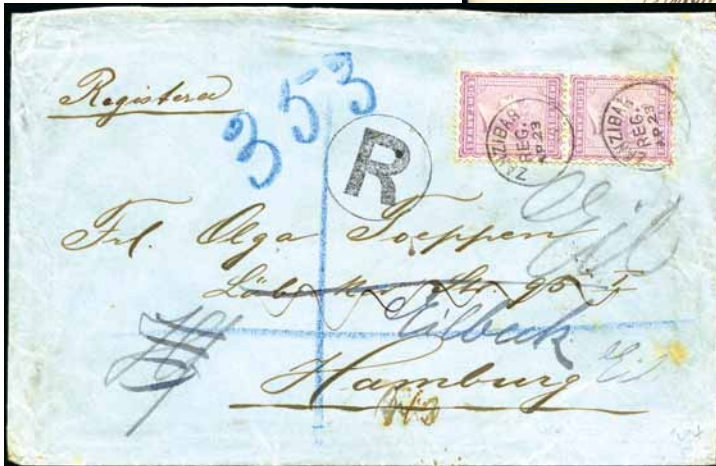 Registered
353
R
ZANZIBAR
REG.
AP 23
ZANZIBAR
REG.
AP 23
Frl. Olga Toeppen
Eil
95 I
Eilbeck
Hamburg
Eil